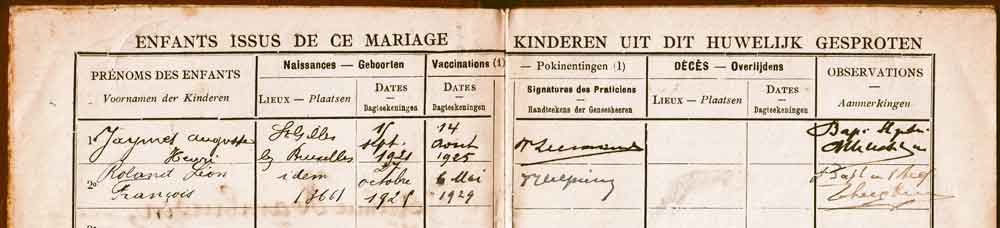 ENFANTS ISSUS DE CE MARIAGE KINDEREN UIT DIT HUWELIJK GESPROTEN
PRÉNOMS DES ENFANTS
Voornamen der Kinderen
Naissances — Geboorten
LIEUX — Plaatsen
DATES
Dagteekeningen
Vaccinations (1)
DATES
Dagteekeningen
— Pokinentingen (1)
Signatures des Praticiens
Handteekens der Geneesheeren
DÉCÈS — Overlijdens
LIEUX — Plaatsen
DATES
Dagteekeningen
OBSERVATIONS
Aanmerkingen
1° Jacques Auguste
Henri
St Gilles
lez Bruxelles
sept.
1921
14
Aout
1925
2° Roland Léon
François
idem
octobre
6 Mai
1929